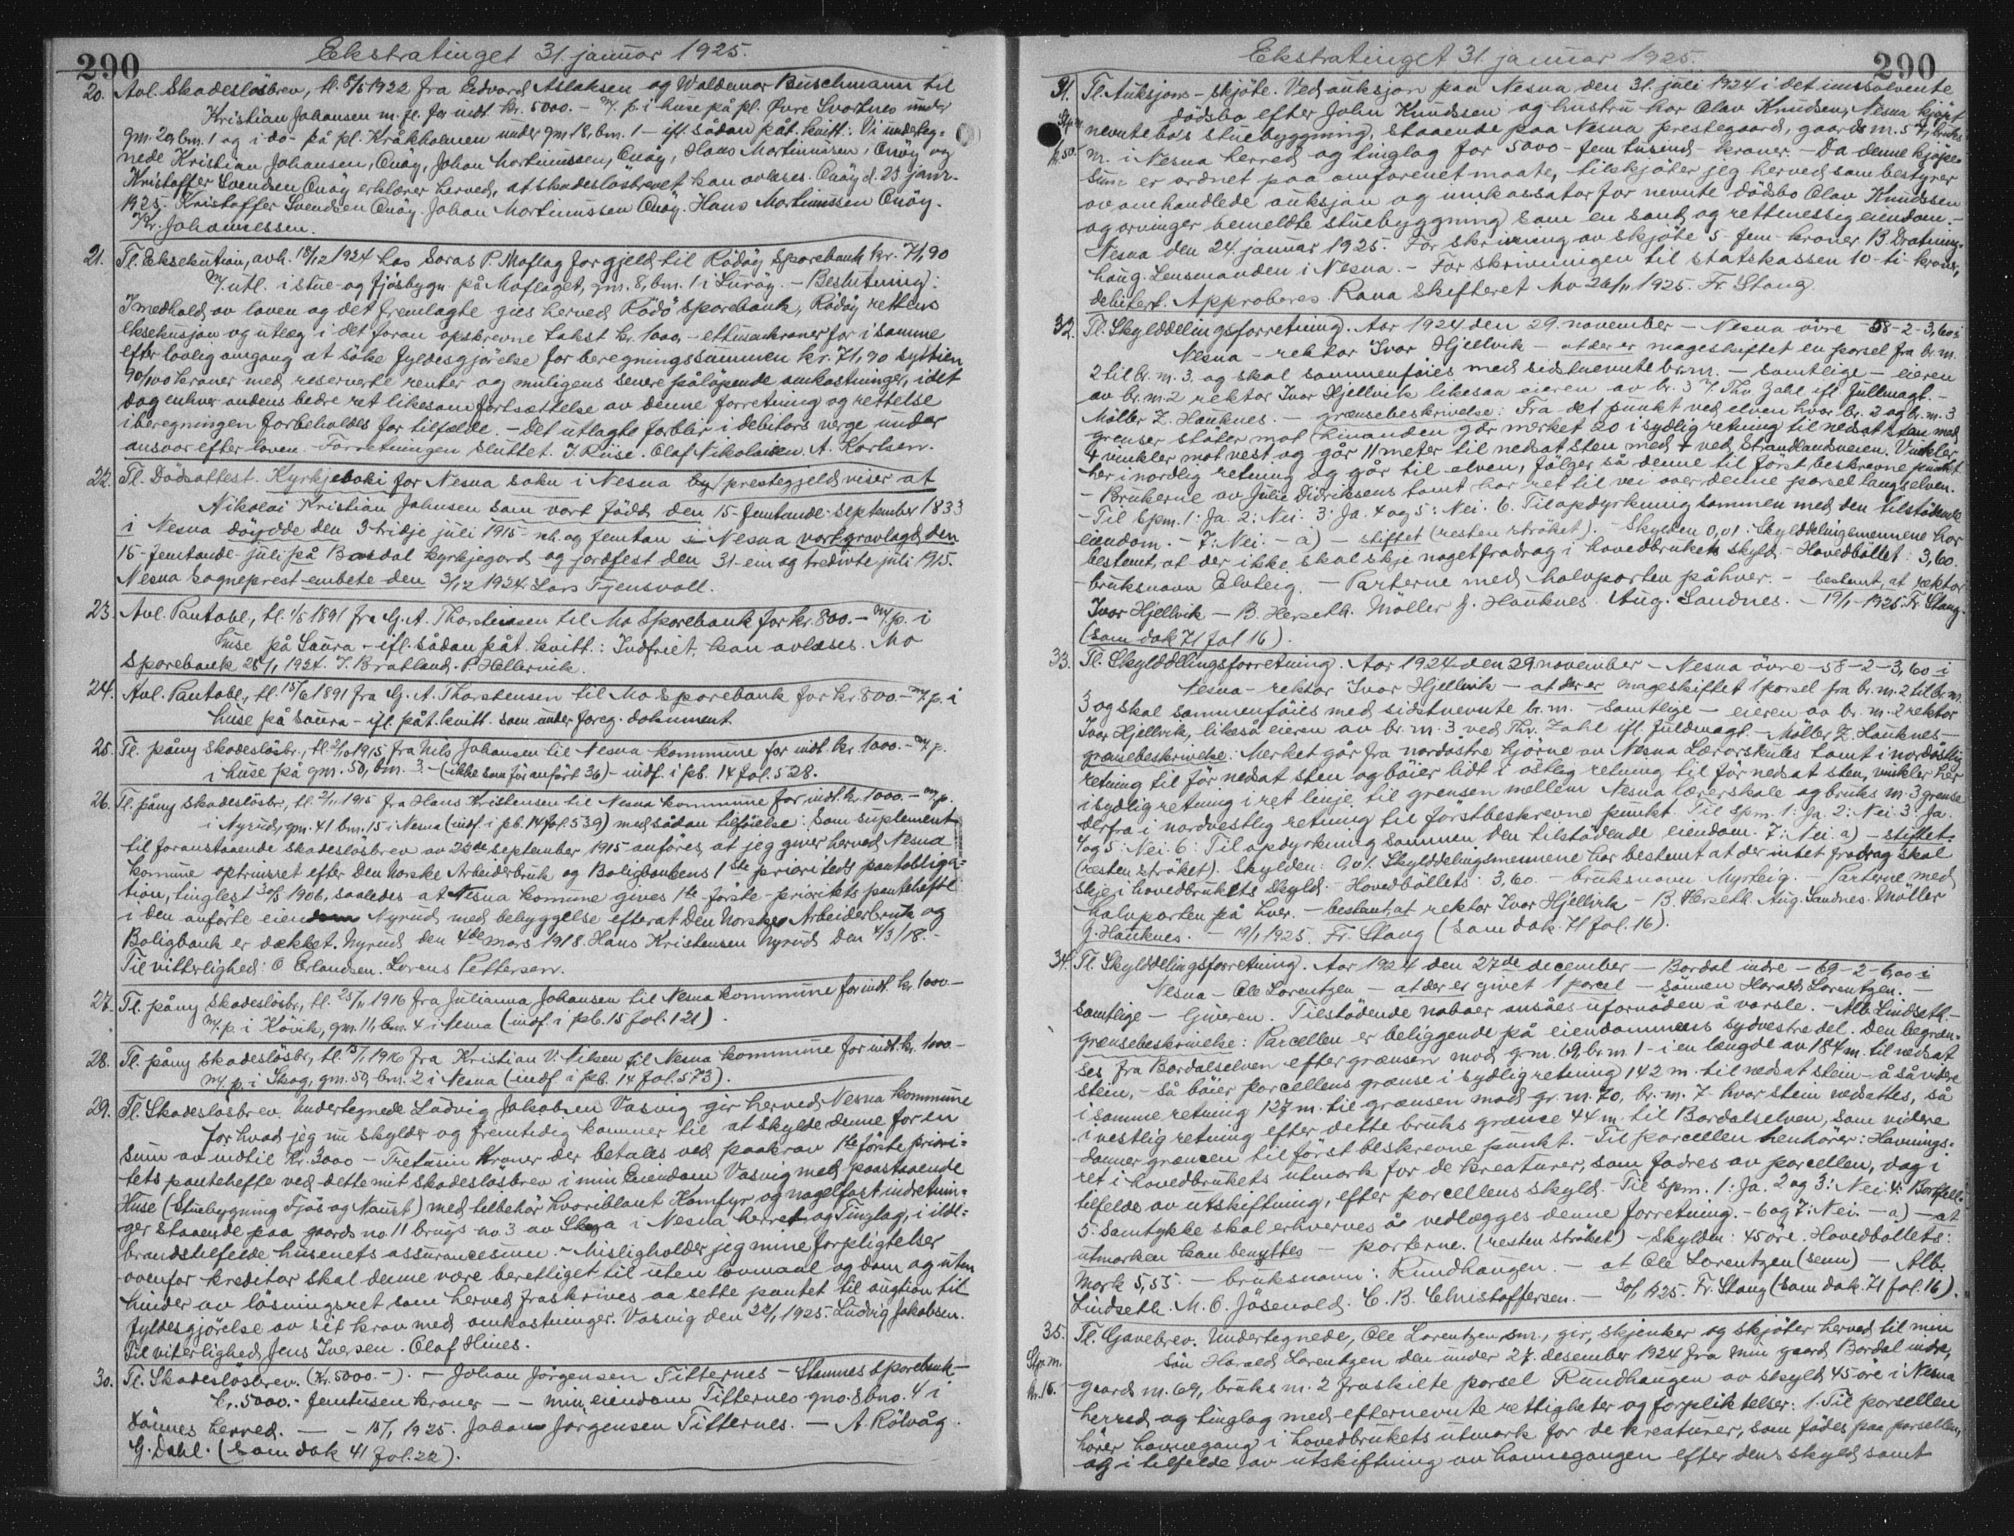 290
Ekstratinget 31. januar 1925.
20. Avl. Skadesløsbrev, tl. 5/5 1922 fra Edvard Atlaksen og Waldemar Buschmann til
Kristian Johansen m. fl. for indt. kr. 5000. – m/. p. i huse på pl. Øvre Svartnes under
gm. 29, bm. 1 og i do på pl. Kråkholmen under gm. 18, bm. 1 – ifl. sådan påt. kvitt: Vi underteg-
nede Kristian Johansen, Onøy, Johan Mortinussen, Onøy, Hans Mortinussen, Onøy og
Kristoffer Svendsen Onøy erklærer herved, at skadesløsbrevet kan avlæses. Onøy d. 23 janr.
1925. Kristoffer Svendsen Onøy. Johan Mortinussen Onøy. Hans Mortinussen Onøy.
Kr. Johannessen.
21. Tl. Eksekution, avh. 18/12 1924 hos Soras P. Moflag for gjeld til Rødøy Sparebank kr. 71,90
m/. utl. i stue- og fjøsbygn. på Moflaget, gm. 8, bm. 1 i Lurøy. – Beslutning:
I medhold av loven og det fremlagte gies herved Rødø Sparebank, Rødøy rettens
eksekusjon og utlæg i det foran opskrevne takst kr. 1000, – ettusen kroner for i samme
efter lovlig omgang at søke fyldesgjørelse for beregningssummen kr. 71,90 syttien
90/100 kroner med reserverte renter og muligens senere påløpende omkostninger, idet
dog enhver andens bedre ret likesom fortsættelse av denne forretning og rettelse
i beregningen forbeholdes for tilfælde. – Det utlagte forblir i debitors verge under
ansvar efter loven. Forretningen sluttet. J Ruse. Olaf Nikolaisen. A. Karlsen.
22. Tl. Dødsattest. Kyrkjeboki for Nesna sokn i Nesna by prestegjeld viser at
Nikolai Kristian Johnsen som vart fødd den 15 – femtande september 1833
i Nesna døydde den 3 – tridje juli 1915 – nh. og femtan i Nesna vart gravlagd den
15 – femtande juli på Bardal kyrkjegard og jordfest den 31 – ein og tredivte juli 1915.
Nesna Sogneprest-embete den 3/12 1924. Lars Tjensvoll.
23. Avl. Pantobl., tl. 1/5 1891 fra G. A. Thorsteinsen til Mo Sparebank for kr. 800. – m/. p. i
huse på Saura – ifl. sådan påt. kvitt.: Indfriet, kan avlæses. Mo
Sparebank 28/1 1924. T. Bratland. P. Hellervik.
24. Avl. Pantobl., tl. 15/6 1891 fra G. A. Thorstensen til Mo Sparebank for kr. 800 – m/. p. i
huse på Saura – ifl. påt. kvitt. som under foreg. dokument.
25. Tl. påny skadesløsbr., tl. 2/10 1915 fra Nils Johansen til Nesna kommune for indt. kr. 1000. – m/. p.
i huse på gm. 50, bm. 3. – (ikke som før anført 36) – indf. i pb. 14 fol. 528.
26. Tl. påny skadesløsbr., tl. 2/11 1915 fra Hans Kristensen til Nesna kommune for indt. kr. 1000. – m/. p.
i Nyrud, gm. 41 bm. 15 i Nesna (indf. i pb. 14 fol. 539) med sådan tilføielse: Som suplement
til foranstaaende skadesløsbrev av 22de september 1915 anføres at jeg giver herved Nesna
komune optrinsret efter Den Norske Arbeiderbruk og Boligbankens 1ste prioriteds pantobliga-
tion, tinglest 30/5 1906, saaledes at Nesna komune gives 1te – første – priorites pantehefte
i den anførte eiendom Nyrud med bebyggelse efterat Den Norske Arbeiderbruk og
Boligbank er dækket. Nyrud den 4de mars 1918. Hans Kristensen Nyrud den 4/3/18. –
Til vitterlighed: O Erlandsen. Lorens Pettersen.
27. Tl. påny skadesløsbr., tl. 25/11 1916 fra Julianna Johansen til Nesna kommune for indt. kr. 1000 –
m/. p. i Kövik, gm. 11, bm. 4 i Nesna (indf. i pb. 15 fol. 121).
28. Tl. påny skadesløsbr., tl. 13/1 1916 fra Kristian V. Viken til Nesna kommune for indt. kr. 1000 –
m/. p. i Skog, gm. 50, bm. 2 i Nesna (indf. i pb. 14 fol. 573).
29. Tl. Skadesløsbrev. Undertegnede Ludvig Jakobsen Vasvig gir herved Nesna kommune
for hvad jeg nu skylder og fremtidig kommer til at skylde denne for en
sum av indtil Kr. 3000 – Tretusin Kroner der betales ved paakrav 1te første priori-
tets pantehefte ved dette mit skadesløsbrev i min Eiendom Vasvig med paastaaende
Huse (Stuebygning Fjøs og Naust) med tilbehør hvoriblant Komfyr og nagelfast indretnin-
ger staaende paa gaards no 11 brugs no. 3 av i Nesna herret og Tinglag, i ild-
brandstilfelde husenets assurancesum. – Misligholder jeg mine forpligtelser
ovenfor kreditor skal denne være berettiget til uten lovmaal og dom og uten
hinder av løsningsret som herved fraskrives aa sette pantet til augtion til
fyldesgjørelse av sit krav med omkostninger. Vasvig den 22/1 1925. Ludvig Jakobsen.
Til viterlighed Jens Iversen. Olaf Hines.
30. Tl. Skadesløsbrev. (kr. 5000. –). – Johan Jørgensen Titternes – Stamnes Sparebank –
kr. 5000. – femtusen kroner – – min eiendom Titternes gno. 8 bno. 4 i
Dønnes herred. – – 15/1 1925. Johan Jørgensen Titternes. – A. Rölvåg.
G. Dahl. (Som dok 41 fol. 22).
Ekstratinget 31. januar 1925.
290
31. Tl. Auksjons-skjøte. Ved auksjon paa Nesna den 31. juli 1924 i det insolvente
dødsbo efter John Knudssen og hustru har Olav Knudsen, Nesna kjøpt
nevnte bo's stuebyggning, staaende paa Nesna prestegaard, gaards m. 57, bruks
kr. 50.
m. i Nesna herred og tinglag for 5000 – fem tusend – kroner. – Da denne kjøpe-
sum er ordnet paa omforenet maate, tilskjøter jeg herved som bestyrer
av omhandlede auksjon og innkassator for nevnte dødsbo Olav Knudssen
og arvinger bemeldte stuebyggning som en sand og rettmessig eiendom. –
Nesna den 24. januar 1925. For skrivning av skjøte 5 – fem – kroner B. Dratning-
haug. Lensmanden i Nesna. – For skrivningen til statskassen 10 – ti – kroner,
debitert. Approberes Rana skifteret Mo 26/1 1925. Fr. Stang.
32. Tl. Skylddelingsforretning. Aar 1924 den 29. november – Nesna øvre – 58 – 2 – 3,60 i
Nesna – rektor Ivar Hjellvik – at der er mageskiftet en parsel fra br. m.
2 til br. m. 3. og skal sammenføies med sidstnevnte br. m. – samtlige – eieren
av br. m. 2 rektor Ivar Hjellvik likesaa eieren av br. 3 v/ Thv. Zahl ifl. fullmagt. –
Møller Z. Hauknes. – grænsebeskrivelse: Fra det punkt ved elven hvor br. 2 og br. m. 3
grenser støter mot hinanden går merket 20 i sydlig retning til nedsat sten med
+ vinkler mot vest og går 11 meter til nedsat sten med + ved Strandlandsveien. Vinkler
her i nordlig retning og går til elven, følger så denne til først beskrevne punkt.
– Brukerne av Julie Didriksens tomt har ret til vei over denne parsel langs elven.
– Til spm. 1: Ja. 2: Nei. 3: Ja. 4 og 5: Nei. 6. Til opdyrkning sammen med den tilstøtende
eiendom. – 7: Nei. – a) – stiftet (resten strøket). – Skylden 0,01. Skylddelingsmennene har
bestemt, at der ikke skal skje noget fradrag i hovedbrukets skyld – Hovedbøllet: 3,60.
– bruksnavn Elvteig. – Parterne med halvparten på hver. – bestemt, at rektor
Ivar Hjellvik – B. Herseth. Møller Z. Hauknes. Aug. Sandnes. – 19/1 – 1925. Fr. Stang.
(Som dok 71 fol 16).
33. Tl. Skylddelingsforretning. Aar 1924 den 29. november – Nesna øvre – 58 – 2 – 3,60 i
Nesna – rektor Ivar Hjellvik – at der er mageskiftet 1 parsel fra br. m. 2 til br. m.
3 og skal sammenføies med sidstnevnte br. m. – samtlige – eieren av br. m. 2 rektor
Ivar Hjellvik, likeså eieren av br. m. 3 ved Thv. Zahl ifl. fuldmagt. – Møller Z. Hauknes –
grænsebeskrivelse: Merket går fra nordøstre hjørne av Nesna Lærerskules tomt i nordøstlig
retning til før nedsat sten og bøier lidt i østlig retning til før nedsat sten, vinkler her
i sydlig retning i ret linje til grensen mellem Nesna lærerskole og bruks m. 3 grense
derfra i nordvestlig retning til førstbeskrevne punkt. Til spm. 1: Ja. 2: Nei. 3: Ja.
4 og 5: Nei. 6: Til opdyrkning sammen den tilstødende eiendom. 7: Nei. a) – stiftet.
(resten strøket). Skylden: 0,01. Skylddelingsmennene har bestemt at der intet fradrag skal
skje i hovedbrukets skyld. Hovedbøllets: 3,60. – bruksnavn Myrteig. – Parterne med
halvparten på hver. – bestemt, at rektor Ivar Hjellvik – B. Herseth. Aug. Sandnes. Møller
Z. Hauknes. – 19/1 1925. Fr. Stang (Som dok. 71 fol. 16).
34. Tl. Skylddelingsforretning. Aar 1924 den 27de december – Bardal indre – 69 – 2 – 6,00 i
Nesna – Ole Lorentzen – at der er givet 1 parcel – sønnen Harald Lorentzen. –
samtlige – Giveren. Tilstødende naboer ansåes ufornøden å varsle. – Alb. Lindseth –
grænsebeskrivelse: Parcellen er beliggende på eiendommens sydvestre del. Den begræn-
ses fra Bardalselven efter grænsen mod gm. 69, br. m. 1 – i en længde av 184 m. til nedsat
sten, – så bøier parcellens grænse i sydlig retning 142 m. til nedsat stein – å så videre
i samme retning 127 m. til grænsen mod gr. m. 70, br. m. 7 – hvor stein nedsattes, så
i vestlig retning efter dette bruks grænse 44 m. til Bardalselven, som videre
danner grænsen til først beskrevne punkt. – Til parcellen henhører: Havnings-
ret i hovedbrukets utmark for de kreaturer, som fødres av parcellen, dog i
tilfelde av utskiftning, efter parcellens skyld. – Til spm. 1: Ja. 2 og 3: Nei 4: Bortfall.
5. Samtykke skal erhverves å vedlægges denne forretning. – 6 og 7: Nei. – a) – at
utmarken kan benyttes – parterne. (resten strøket) – skylden: 45 øre. Hovedbøllets:
mark 5,55. – bruksnavn: Rundhaugen. – at Ole Lorentzen (senn) – Alb.
Lindseth. M. O. Jøsenold. C. B. Christoffersen. – 30/1 1925. Fr. Stang (Som dok. 71 fol. 16).
35. Tl. Gavebrev. Undertegnede, Ole Lorentzen, snr., gir, skjenker og skjøter herved til min
Stp. m.
søn Harald Lorentzen den under 27. desember 1924 fra min gaard Bardal indre,
kr. 16. –
gaards m. 69, bruks m. 2 fraskilte parsel Rundhaugen av skyld 45 øre i Nesna
herred og tinglag med efternevnte rettigheter og forpliktelser: 1. Til parsellen
hører havnegang i hovedbrukets utmark for de kreaturer, som fødes paa parsellen,
og i tilfelde av utskiftning av havnegangen efter dens skyld samt